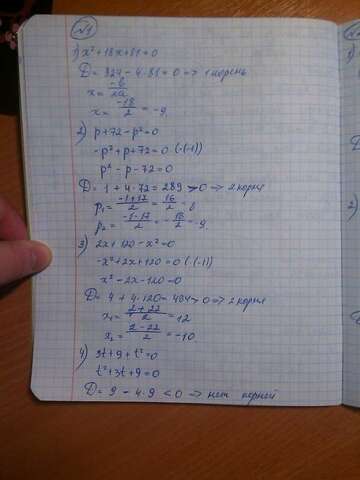 №1
1) x² + 18x + 81 = 0
D = 324 - 4·81 = 0 => 1 корень
x = -b/2a
x = -18/2 = -9
2) p + 72 - p² = 0
-p² + p + 72 = 0 (·(-1))
p² - p - 72 = 0
D = 1 + 4·72 = 289 > 0 => 2 корня
p₁ = -1+17/2 = 16/2 = 8
p₂ = -1-17/2 = -18/2 = -9
3) 2x + 120 - x² = 0
-x² + 2x + 120 = 0 (·(-1))
x² - 2x - 120 = 0
D = 4 + 4·120 = 484 > 0 => 2 корня
x₁ = 2+22/2 = 12
x₂ = 2-22/2 = -10
4) 3t + 9 + t² = 0
t² + 3t + 9 = 0
D = 9 - 4·9 < 0 => нет корней